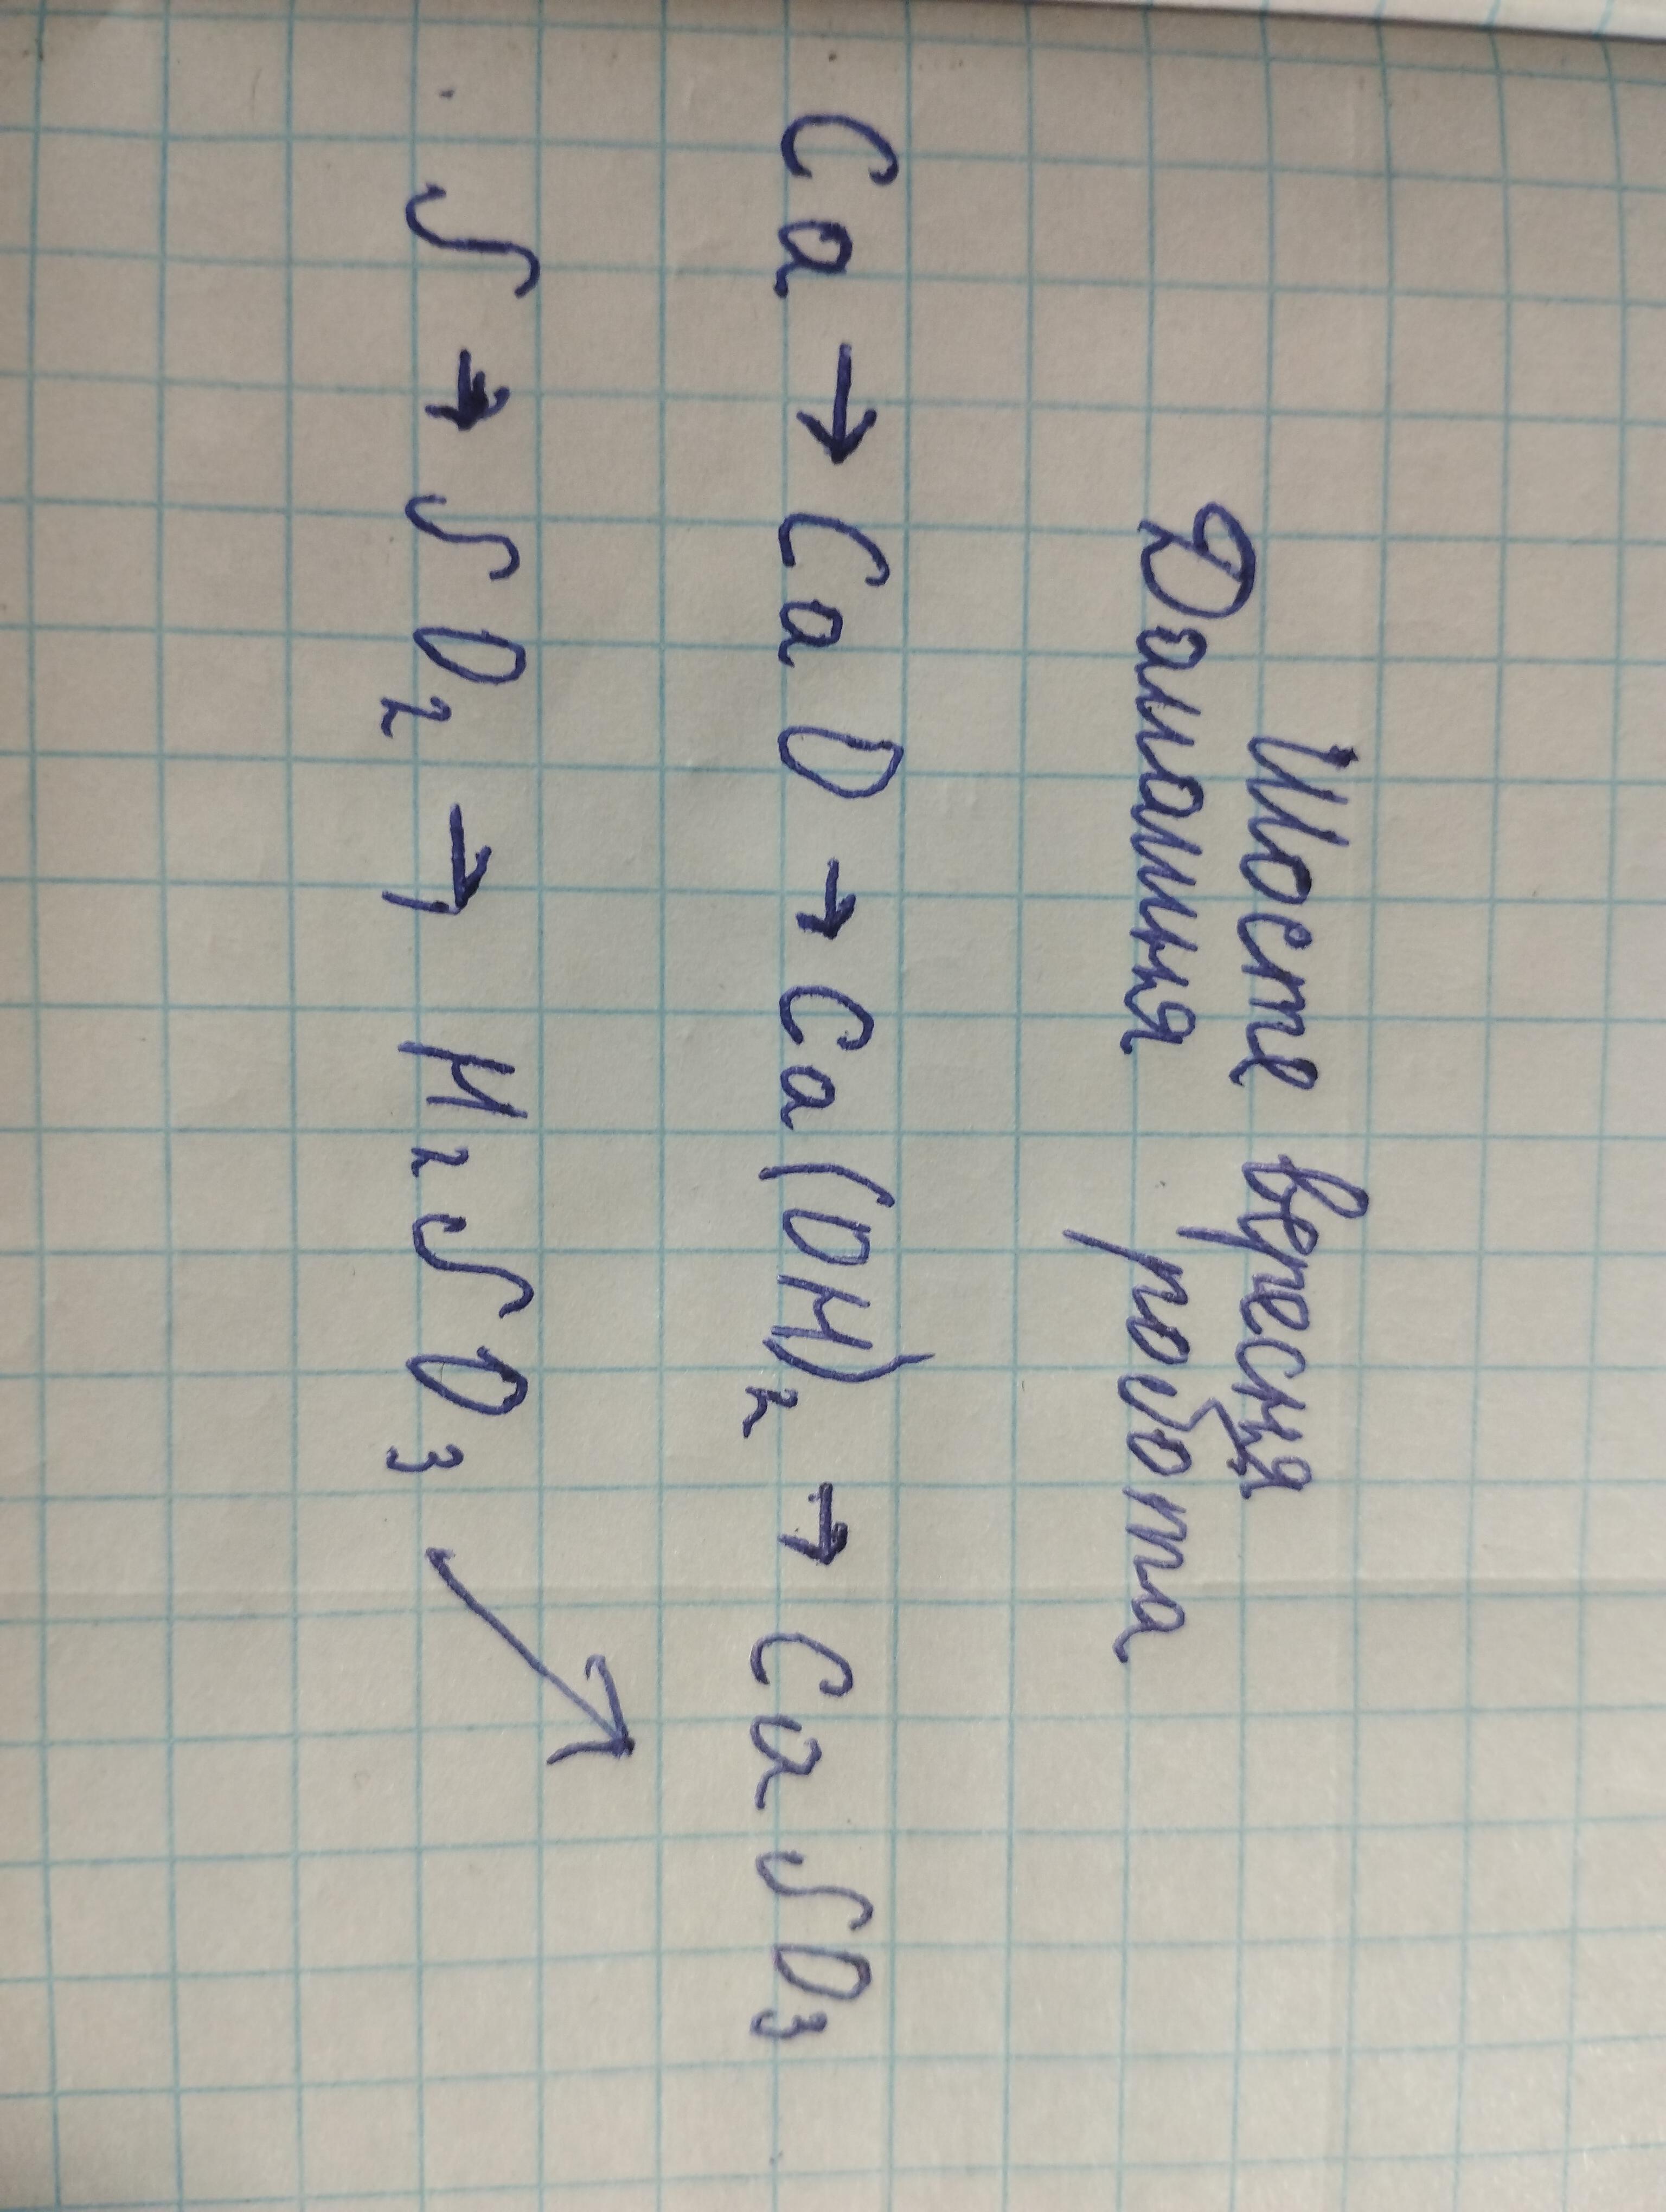 Шосте вересня
Домашня робота
Ca → CaO → Ca(OH)₂ → CaSO₃
S → SO₂ → H₂SO₃ ↗